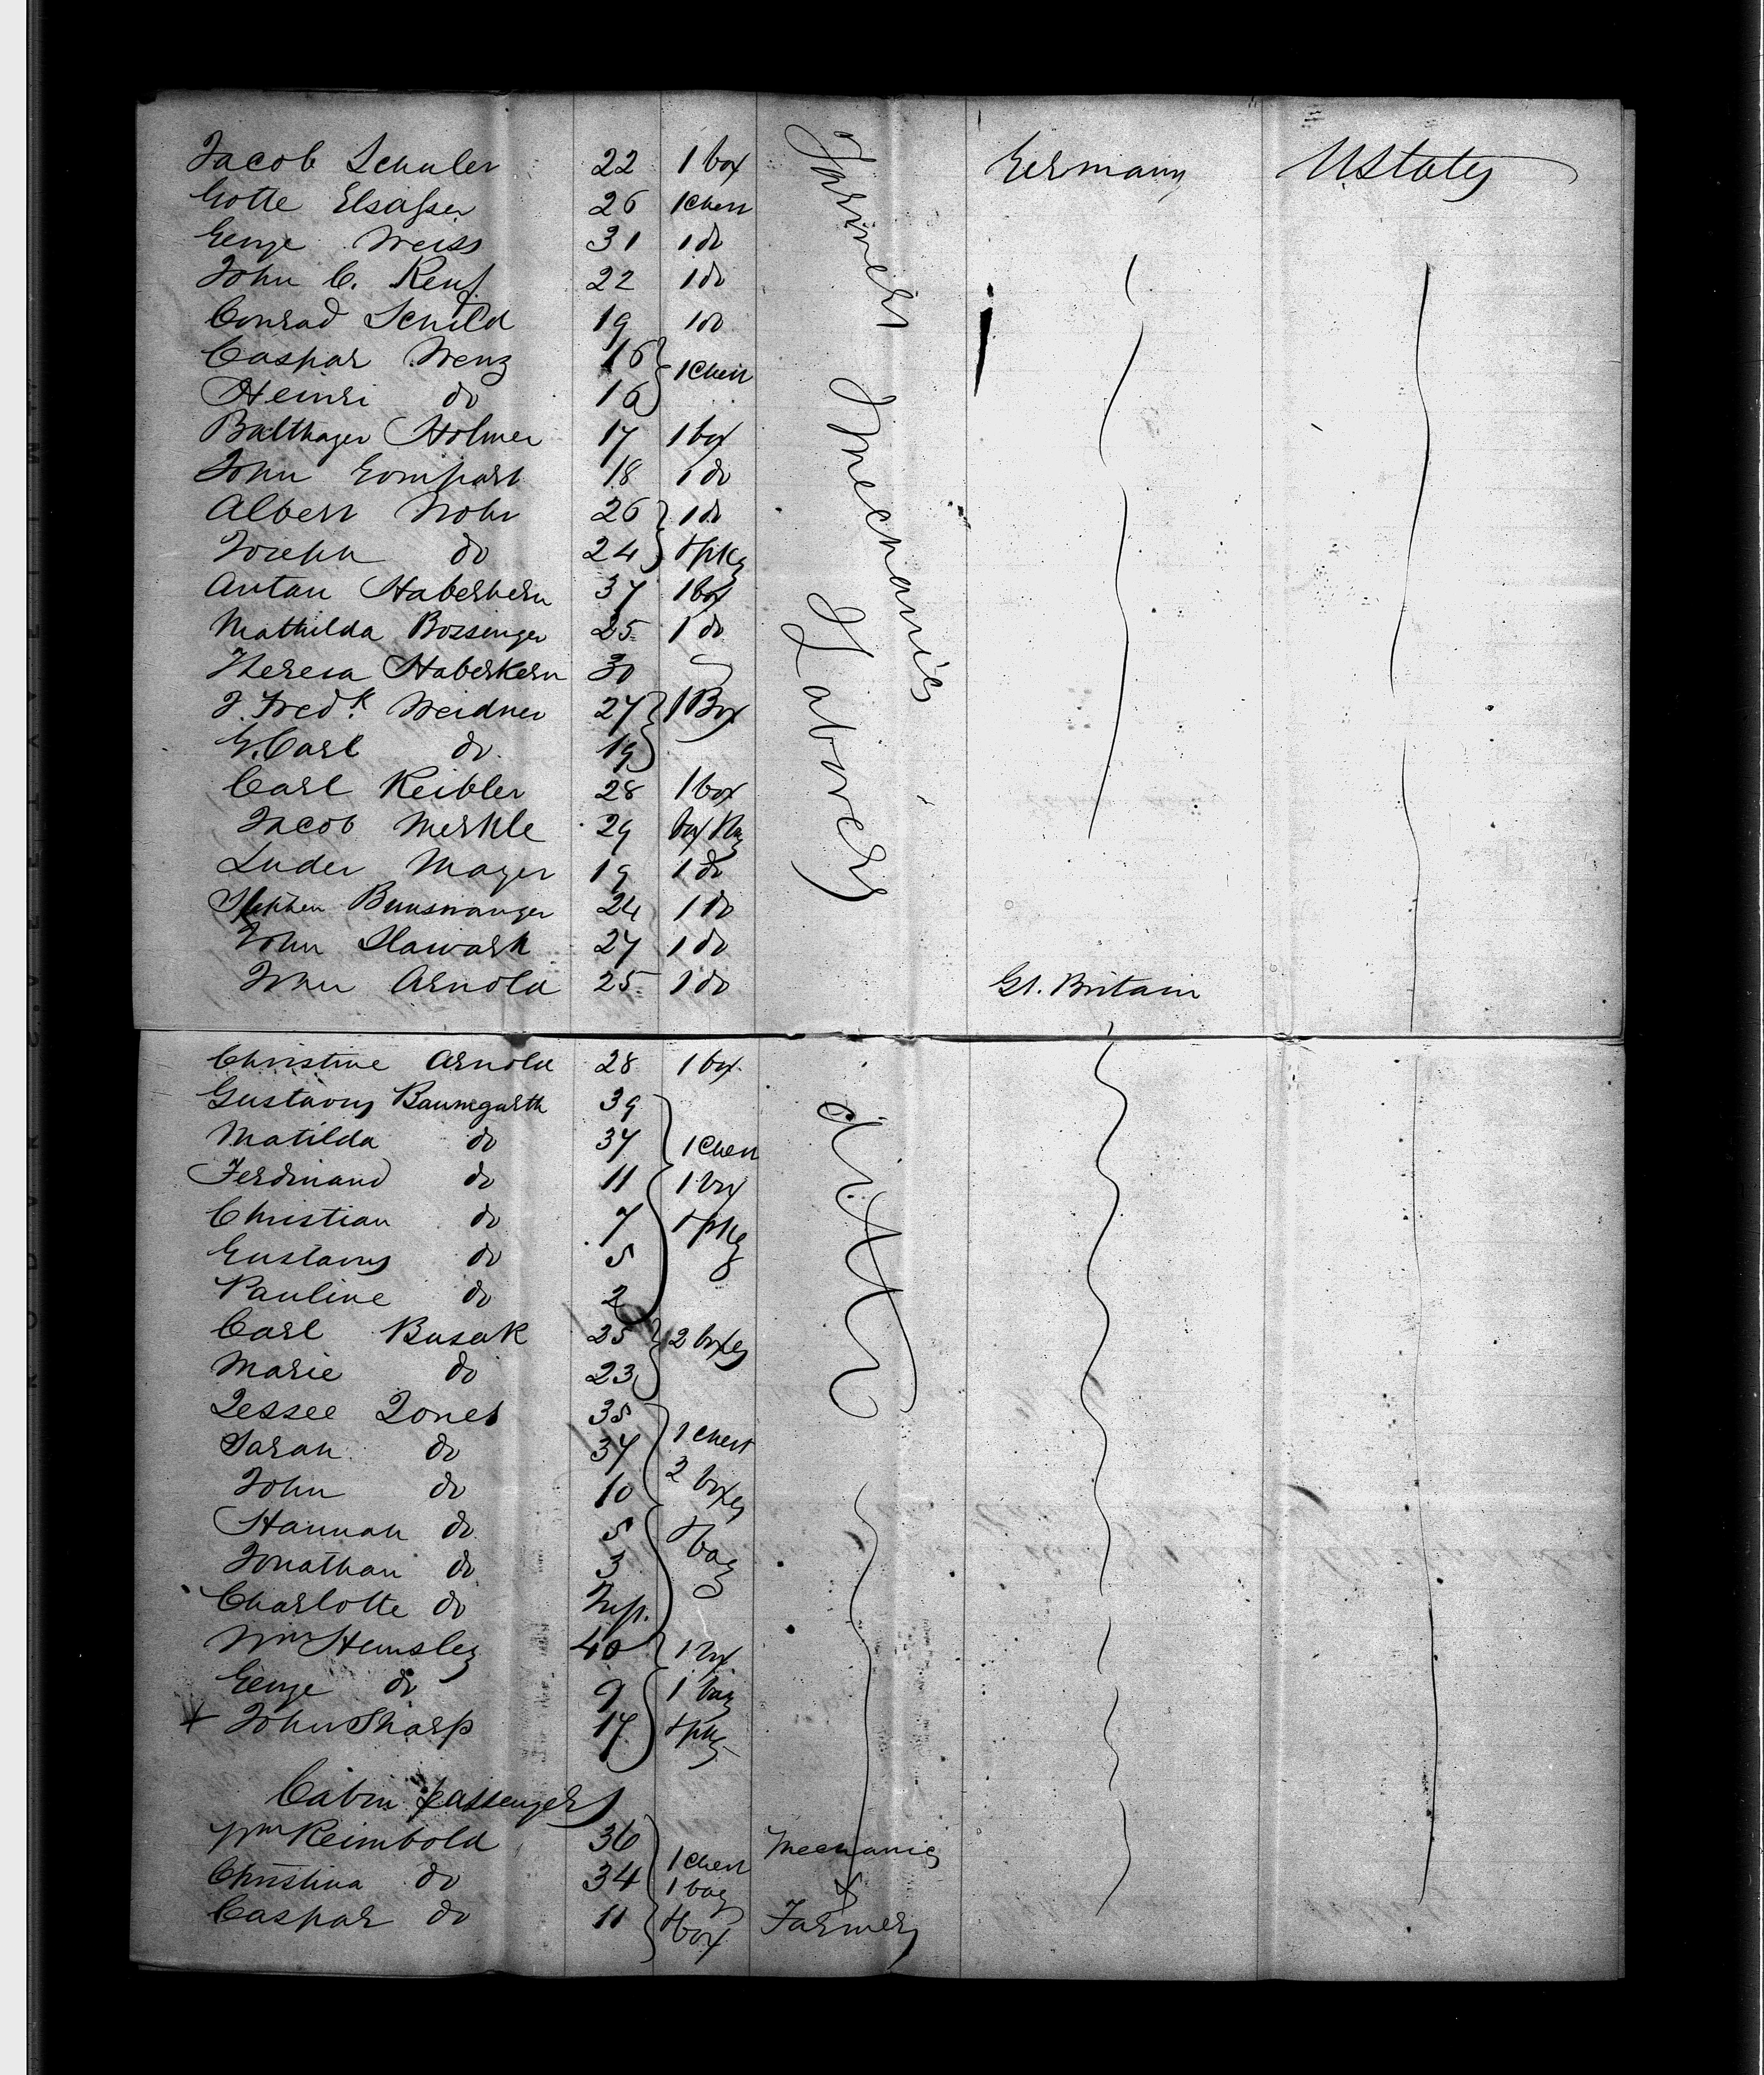 Jacob Schuler 22 1 box Germany UStates
Gotte Elsasser 26 1 Chest
George Weiss 31 1 do
John C. Renf 22 1 do
Conrad Schild 19 1 do
Caspar Wenz 16 1 Chest
Heinri do 16
Balthazer Holmer 17 1 box
John Gompart 18 1 do
Albert Wohr 26 1 do
Joseph do 24 & pkg
Antan Haberkern 37 1 box
Mathilda Bossinger 25 1 do
Theresa Haberkern 30
J. Fredk Weidner 27 1 Box
G. Carl do 19
Carl Keibler 28 1 box
Jacob Merkle 29 box
Luder Mayer 19 1 do
Stephen Bunswanger 24 1 do
John Slawark 27 1 do
John Arnold 25 1 do Gt. Britain
Farmers Mechanics
Laborers
Christine Arnold 28 1 box
Gustavus Baumgarth 39
Matilda do 37 1 Chest
Ferdinand do 11 1 box
Christian do 7 & pkg
Gustavus do 5
Pauline do 2
Carl Busak 25 2 boxes
Marie do 23
Jessee Jones 35
Sarah do 37 1 Chest
John do 10 2 boxes
Hannah do 5 & bag
Jonathan do 3
Charlotte do Inf.
Wm Hemsley 40 1 box
George do 9 1 bag
John Sharp 17 & pkg
ditto
Cabin passengers
Wm Reimbold 36 Mechanics
Christina do 34 1 Chest 1 bag &
Caspar do 11 & box Farmers